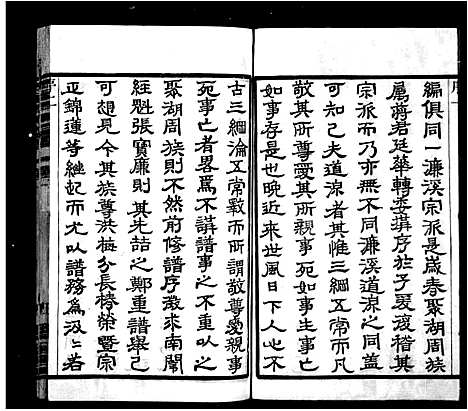 編俱同一濂溪宗派是歲春聚湖周族
屬蔣君廷華轉委蕱序於予爰溲稽其
宗派之同亦無不同濂溪道源之同蓋
可知已夫道源者其惟三綱五常乎事
敬其所尊愛其所親事死如事生事亡
如事存是也晚近來世風日下人心不
古三綱淪五常斁而所謂敬尊愛親事
死事亡者畧焉不講譜事之不重久矣
聚湖周族則不然前修譜序徵求南闈
經魁張寶廉則其先喆之鄭重譜舉已
可想見今其族尊洪梅分長椿榮暨宗
正錦蓮等繼起而尤以譜務為汲汲若